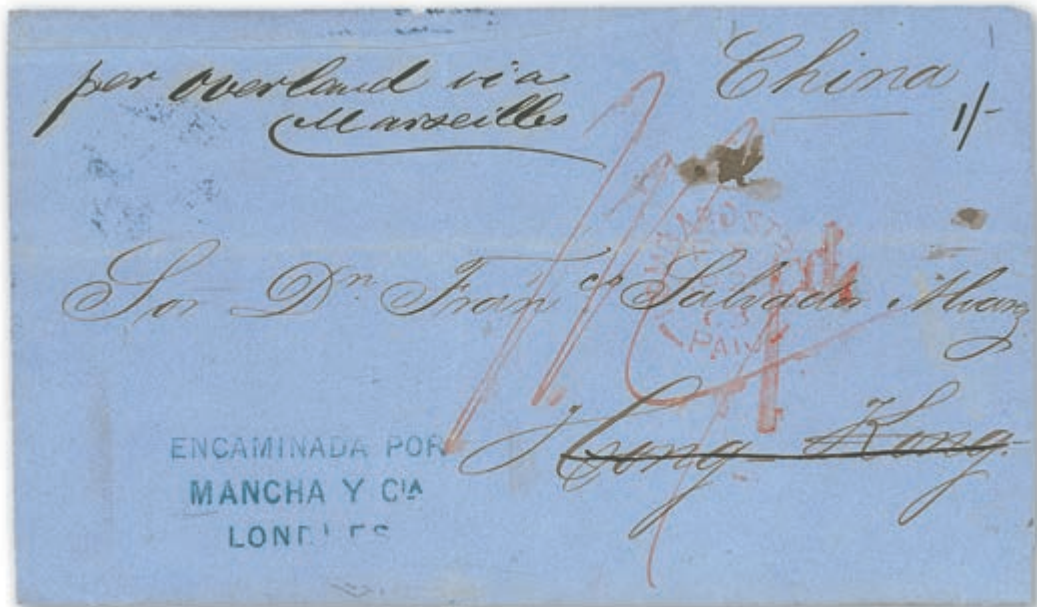 per overland via
Marseilles
China
1/-
Sor Dn Franco Salvador
Hong Kong.
PAID
ENCAMINADA POR
MANCHA Y CIA
LONDRES